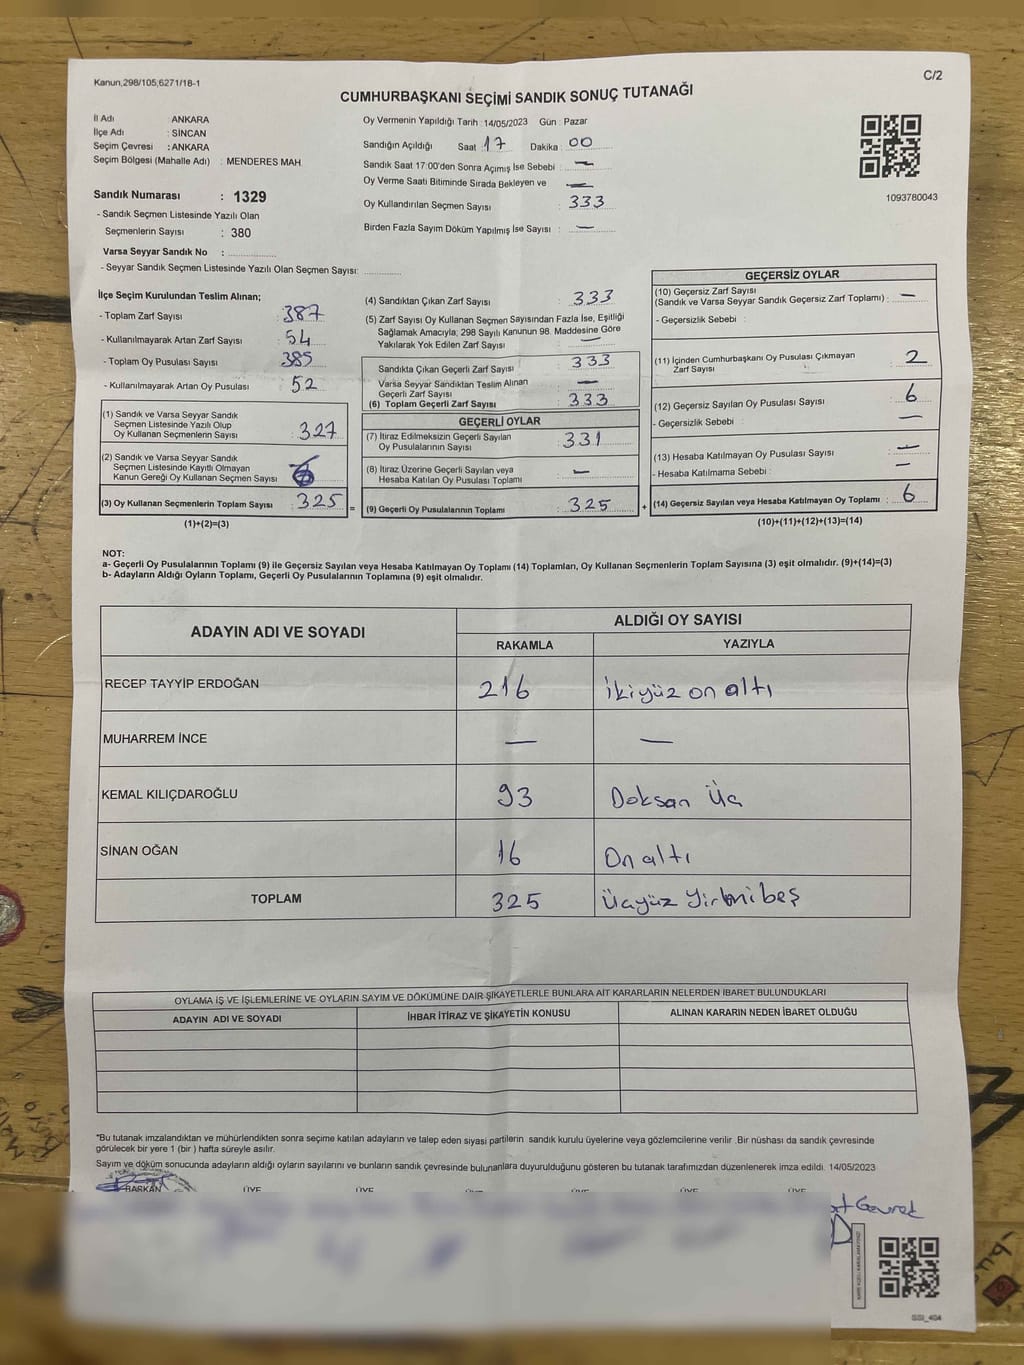 Kanun,298/105,6271/18-1
C/2
CUMHURBAŞKANI SEÇİMİ SANDIK SONUÇ TUTANAĞI
İl Adı : ANKARA
İlçe Adı : SİNCAN
Seçim Çevresi : ANKARA
Seçim Bölgesi (Mahalle Adı) : MENDERES MAH.
Sandık Numarası : 1329
- Sandık Seçmen Listesinde Yazılı Olan
Seçmenlerin Sayısı : 380
Varsa Seyyar Sandık No :
- Seyyar Sandık Seçmen Listesinde Yazılı Olan Seçmen Sayısı:
Oy Vermenin Yapıldığı Tarih :14/05/2023 Gün : Pazar
Sandığın Açıldığı Saat : 17 Dakika : 00
Sandık Saat 17:00'den Sonra Açımış İse Sebebi : —
Oy Verme Saati Bitiminde Sırada Bekleyen ve —
Oy Kullandırılan Seçmen Sayısı : 333
Birden Fazla Sayım Döküm Yapılmış İse Sayısı : —
1093780043
İlçe Seçim Kurulundan Teslim Alınan;
- Toplam Zarf Sayısı : 387
- Kullanılmayarak Artan Zarf Sayısı : 54
- Toplam Oy Pusulası Sayısı : 385
- Kullanılmayarak Artan Oy Pusulası : 52
(1) Sandık ve Varsa Seyyar Sandık
Seçmen Listesinde Yazılı Olup
Oy Kullanan Seçmenlerin Sayısı : 327
(2) Sandık ve Varsa Seyyar Sandık
Seçmen Listesinde Kayıtlı Olmayan
Kanun Gereği Oy Kullanan Seçmen Sayısı :
(3) Oy Kullanan Seçmenlerin Toplam Sayısı : 325
(1)+(2)=(3)
=
(4) Sandıktan Çıkan Zarf Sayısı : 333
(5) Zarf Sayısı Oy Kullanan Seçmen Sayısından Fazla İse, Eşitliği
Sağlamak Amacıyla; 298 Sayılı Kanunun 98. Maddesine Göre
Yakılarak Yok Edilen Zarf Sayısı : —
Sandıkta Çıkan Geçerli Zarf Sayısı : 333
Varsa Seyyar Sandıktan Teslim Alınan
Geçerli Zarf Sayısı : —
(6) Toplam Geçerli Zarf Sayısı : 333
GEÇERLİ OYLAR
(7) İtiraz Edilmeksizin Geçerli Sayılan
Oy Pusulalarının Sayısı : 331
(8) İtiraz Üzerine Geçerli Sayılan veya
Hesaba Katılan Oy Pusulası Toplamı : —
(9) Geçerli Oy Pusulalarının Toplamı : 325
+
GEÇERSİZ OYLAR
(10) Geçersiz Zarf Sayısı
(Sandık ve Varsa Seyyar Sandık Geçersiz Zarf Toplamı) : —
- Geçersizlik Sebebi :
(11) İçinden Cumhurbaşkanı Oy Pusulası Çıkmayan
Zarf Sayısı : 2
(12) Geçersiz Sayılan Oy Pusulası Sayısı : 6
- Geçersizlik Sebebi : —
(13) Hesaba Katılmayan Oy Pusulası Sayısı : —
- Hesaba Katılmama Sebebi : —
(14) Geçersiz Sayılan veya Hesaba Katılmayan Oy Toplamı : 6
(10)+(11)+(12)+(13)=(14)
NOT:
a- Geçerli Oy Pusulalarının Toplamı (9) ile Geçersiz Sayılan veya Hesaba Katılmayan Oy Toplamı (14) Toplamları, Oy Kullanan Seçmenlerin Toplam Sayısına (3) eşit olmalıdır. (9)+(14)=(3)
b- Adayların Aldığı Oyların Toplamı, Geçerli Oy Pusulalarının Toplamına (9) eşit olmalıdır.
ADAYIN ADI VE SOYADI
ALDIĞI OY SAYISI
RAKAMLA YAZIYLA
RECEP TAYYİP ERDOĞAN 216 İkiyüz on altı
MUHARREM İNCE — —
KEMAL KILIÇDAROĞLU 93 Doksan Üç
SİNAN OĞAN 16 On altı
TOPLAM 325 Üçyüz Yirmibeş
OYLAMA İŞ VE İŞLEMLERİNE VE OYLARIN SAYIM VE DÖKÜMÜNE DAİR ŞİKAYETLERLE BUNLARA AİT KARARLARIN NELERDEN İBARET BULUNDUKLARI
ADAYIN ADI VE SOYADI İHBAR İTİRAZ VE ŞİKAYETİN KONUSU ALINAN KARARIN NEDEN İBARET OLDUĞU
*Bu tutanak imzalandıktan ve mühürlendikten sonra seçime katılan adayların ve talep eden siyasi partilerin sandık kurulu üyelerine veya gözlemcilerine verilir .Bir nüshası da sandık çevresinde
görülecek bir yere 1 (bir ) hafta süreyle asılır.
Sayım ve döküm sonucunda adayların aldığı oyların sayılarını ve bunların sandık çevresinde bulunanlara duyurulduğunu gösteren bu tutanak tarafımızdan düzenlenerek imza edildi. 14/05/2023
BAŞKAN ÜYE ÜYE ÜYE ÜYE ÜYE ÜYE
SSI_404